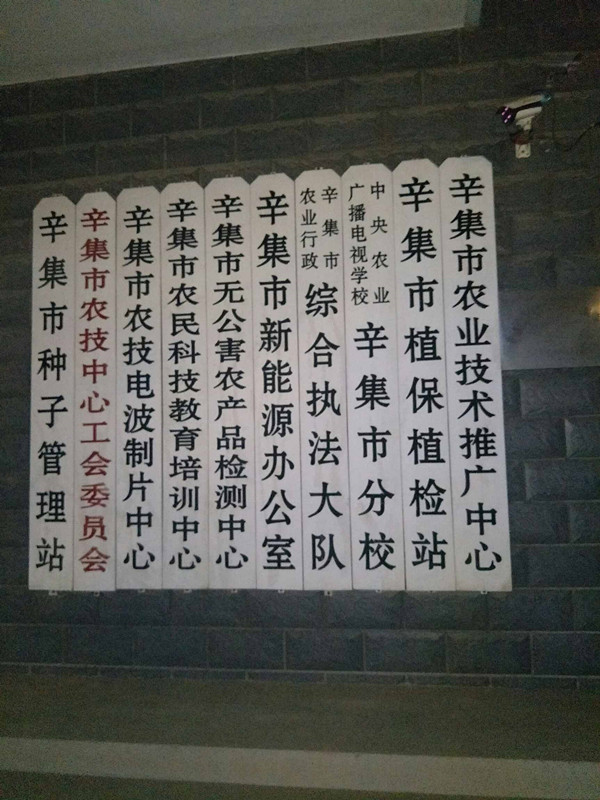 辛集市农业技术推广中心
辛集市植保植检站
中央农业
广播电视学校
辛集市分校
辛集市
农业行政
综合执法大队
辛集市新能源办公室
辛集市无公害农产品检测中心
辛集市农民科技教育培训中心
辛集市农技电波制片中心
辛集市农技中心工会委员会
辛集市种子管理站